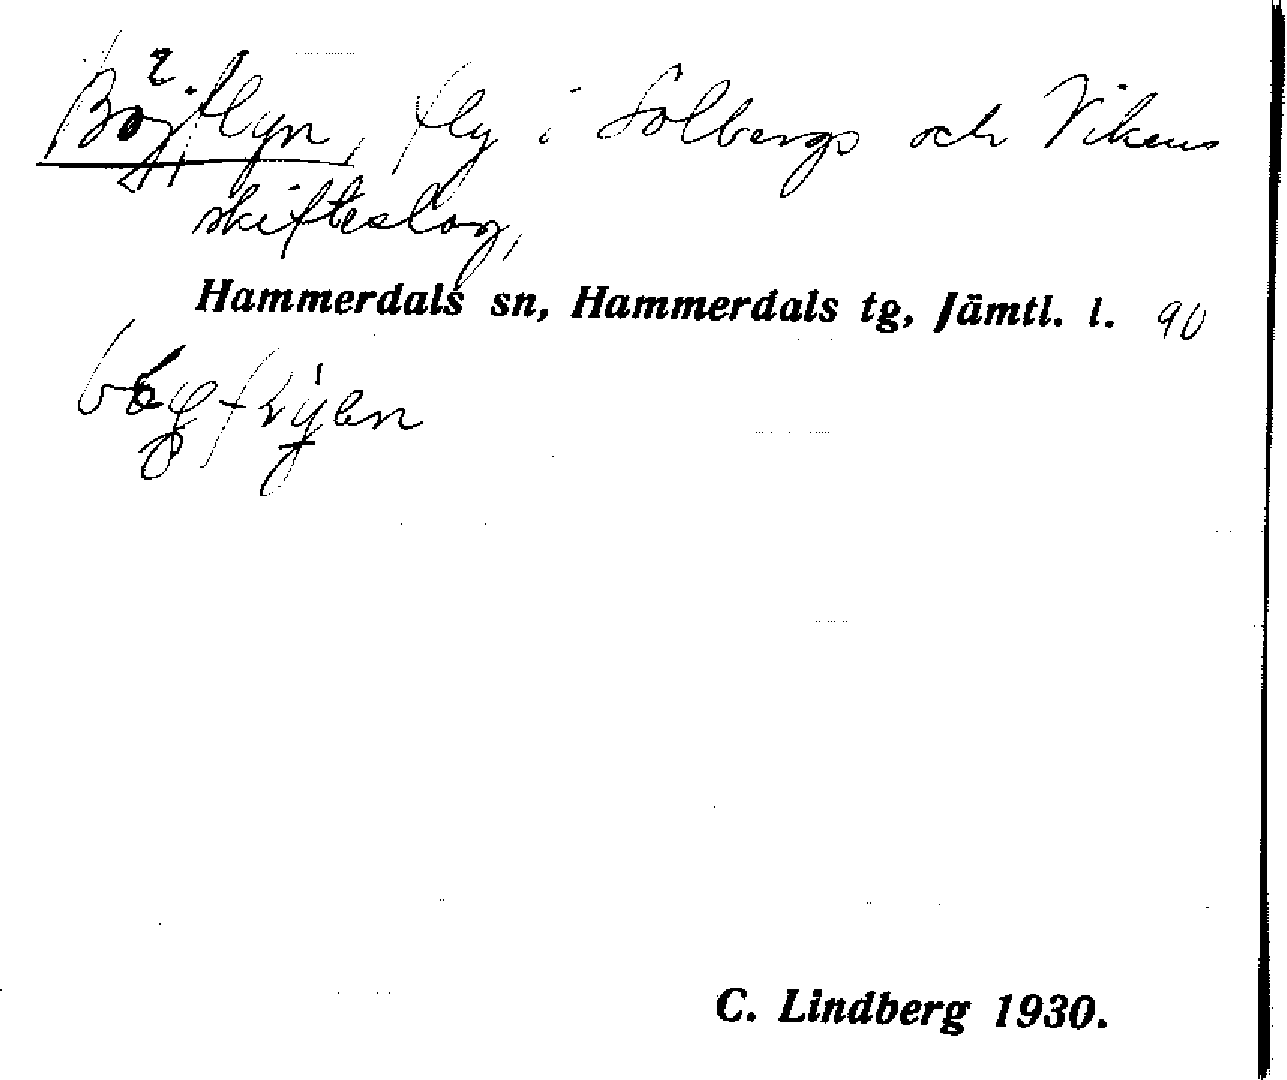 fly i Solbergs och Vikens
skifteslag,
Hammerdals sn, Hammerdals tg, Jämtl. l. 90
C. Lindberg 1930.